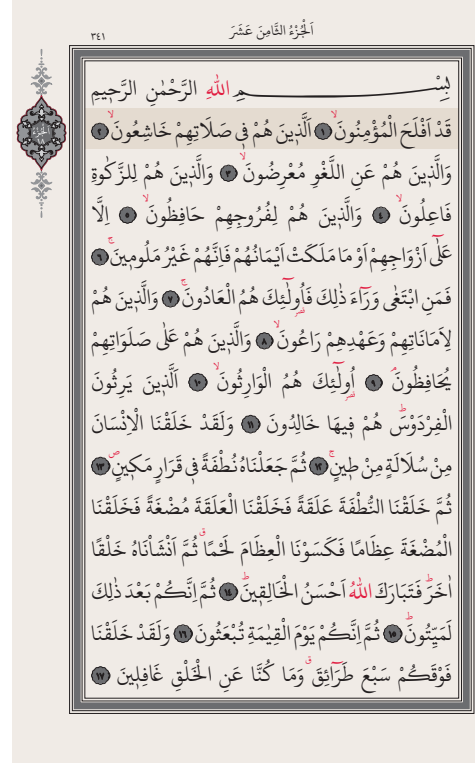 اَلْجُزْءُ الثَّامِنَ عَشَرَ
٣٤١
بِسْــــــــــمِ اللهِ الرَّحْمٰنِ الرَّح۪يمِ
قَدْ اَفْلَحَ الْمُؤْمِنُونَۙ ﴿١﴾ اَلَّذ۪ينَ هُمْ ف۪ي صَلَاتِهِمْ خَاشِعُونَۙ ﴿٢﴾
وَالَّذ۪ينَ هُمْ عَنِ اللَّغْوِ مُعْرِضُونَۙ ﴿٣﴾ وَالَّذ۪ينَ هُمْ لِلزَّكٰوةِ
فَاعِلُونَۙ ﴿٤﴾ وَالَّذ۪ينَ هُمْ لِفُرُوجِهِمْ حَافِظُونَۙ ﴿٥﴾ اِلَّا
عَلٰٓى اَزْوَاجِهِمْ اَوْ مَا مَلَكَتْ اَيْمَانُهُمْ فَاِنَّهُمْ غَيْرُ مَلُوم۪ينَۚ ﴿٦﴾
فَمَنِ ابْتَغٰى وَرَٓاءَ ذٰلِكَ فَاُو۬لٰٓئِكَ هُمُ الْعَادُونَۚ ﴿٧﴾ وَالَّذ۪ينَ هُمْ
لِاَمَانَاتِهِمْ وَعَهْدِهِمْ رَاعُونَۙ ﴿٨﴾ وَالَّذ۪ينَ هُمْ عَلٰى صَلَوَاتِهِمْ
يُحَافِظُونَۢ ﴿٩﴾ اُو۬لٰٓئِكَ هُمُ الْوَارِثُونَۙ ﴿١٠﴾ اَلَّذ۪ينَ يَرِثُونَ
الْفِرْدَوْسَۜ هُمْ ف۪يهَا خَالِدُونَ ﴿١١﴾ وَلَقَدْ خَلَقْنَا الْاِنْسَانَ
مِنْ سُلَالَةٍ مِنْ ط۪ينٍۚ ﴿١٢﴾ ثُمَّ جَعَلْنَاهُ نُطْفَةً ف۪ي قَرَارٍ مَك۪ينٍۖ ﴿١٣﴾
ثُمَّ خَلَقْنَا النُّطْفَةَ عَلَقَةً فَخَلَقْنَا الْعَلَقَةَ مُضْغَةً فَخَلَقْنَا
الْمُضْغَةَ عِظَامًا فَكَسَوْنَا الْعِظَامَ لَحْمًاۗ ثُمَّ اَنْشَاْنَاهُ خَلْقًا
اٰخَرَۜ فَتَبَارَكَ اللهُ اَحْسَنُ الْخَالِق۪ينَۜ ﴿١٤﴾ ثُمَّ اِنَّكُمْ بَعْدَ ذٰلِكَ
لَمَيِّتُونَۜ ﴿١٥﴾ ثُمَّ اِنَّكُمْ يَوْمَ الْقِيٰمَةِ تُبْعَثُونَ ﴿١٦﴾ وَلَقَدْ خَلَقْنَا
فَوْقَكُمْ سَبْعَ طَرَٓائِقَۗ وَمَا كُنَّا عَنِ الْخَلْقِ غَافِل۪ينَ ﴿١٧﴾